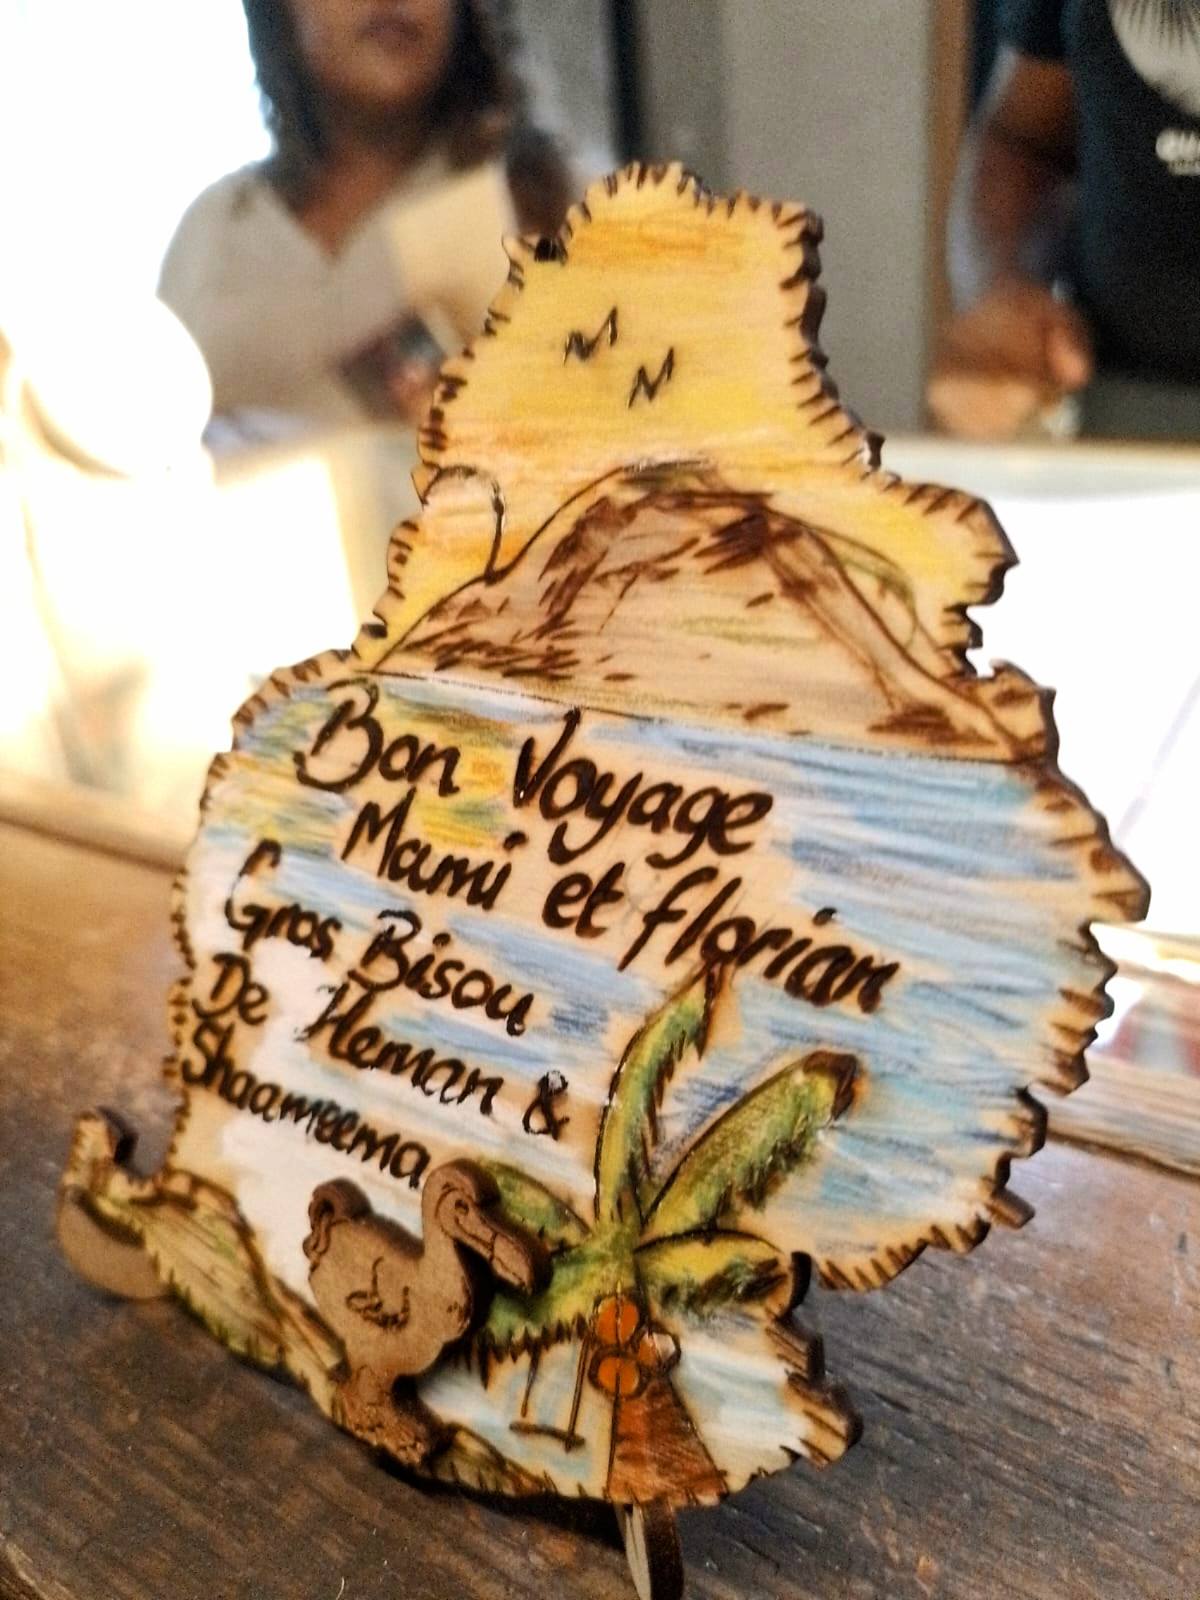 Bon Voyage
Mami et florian
Gros Bisou
De Heman &
Shaameema